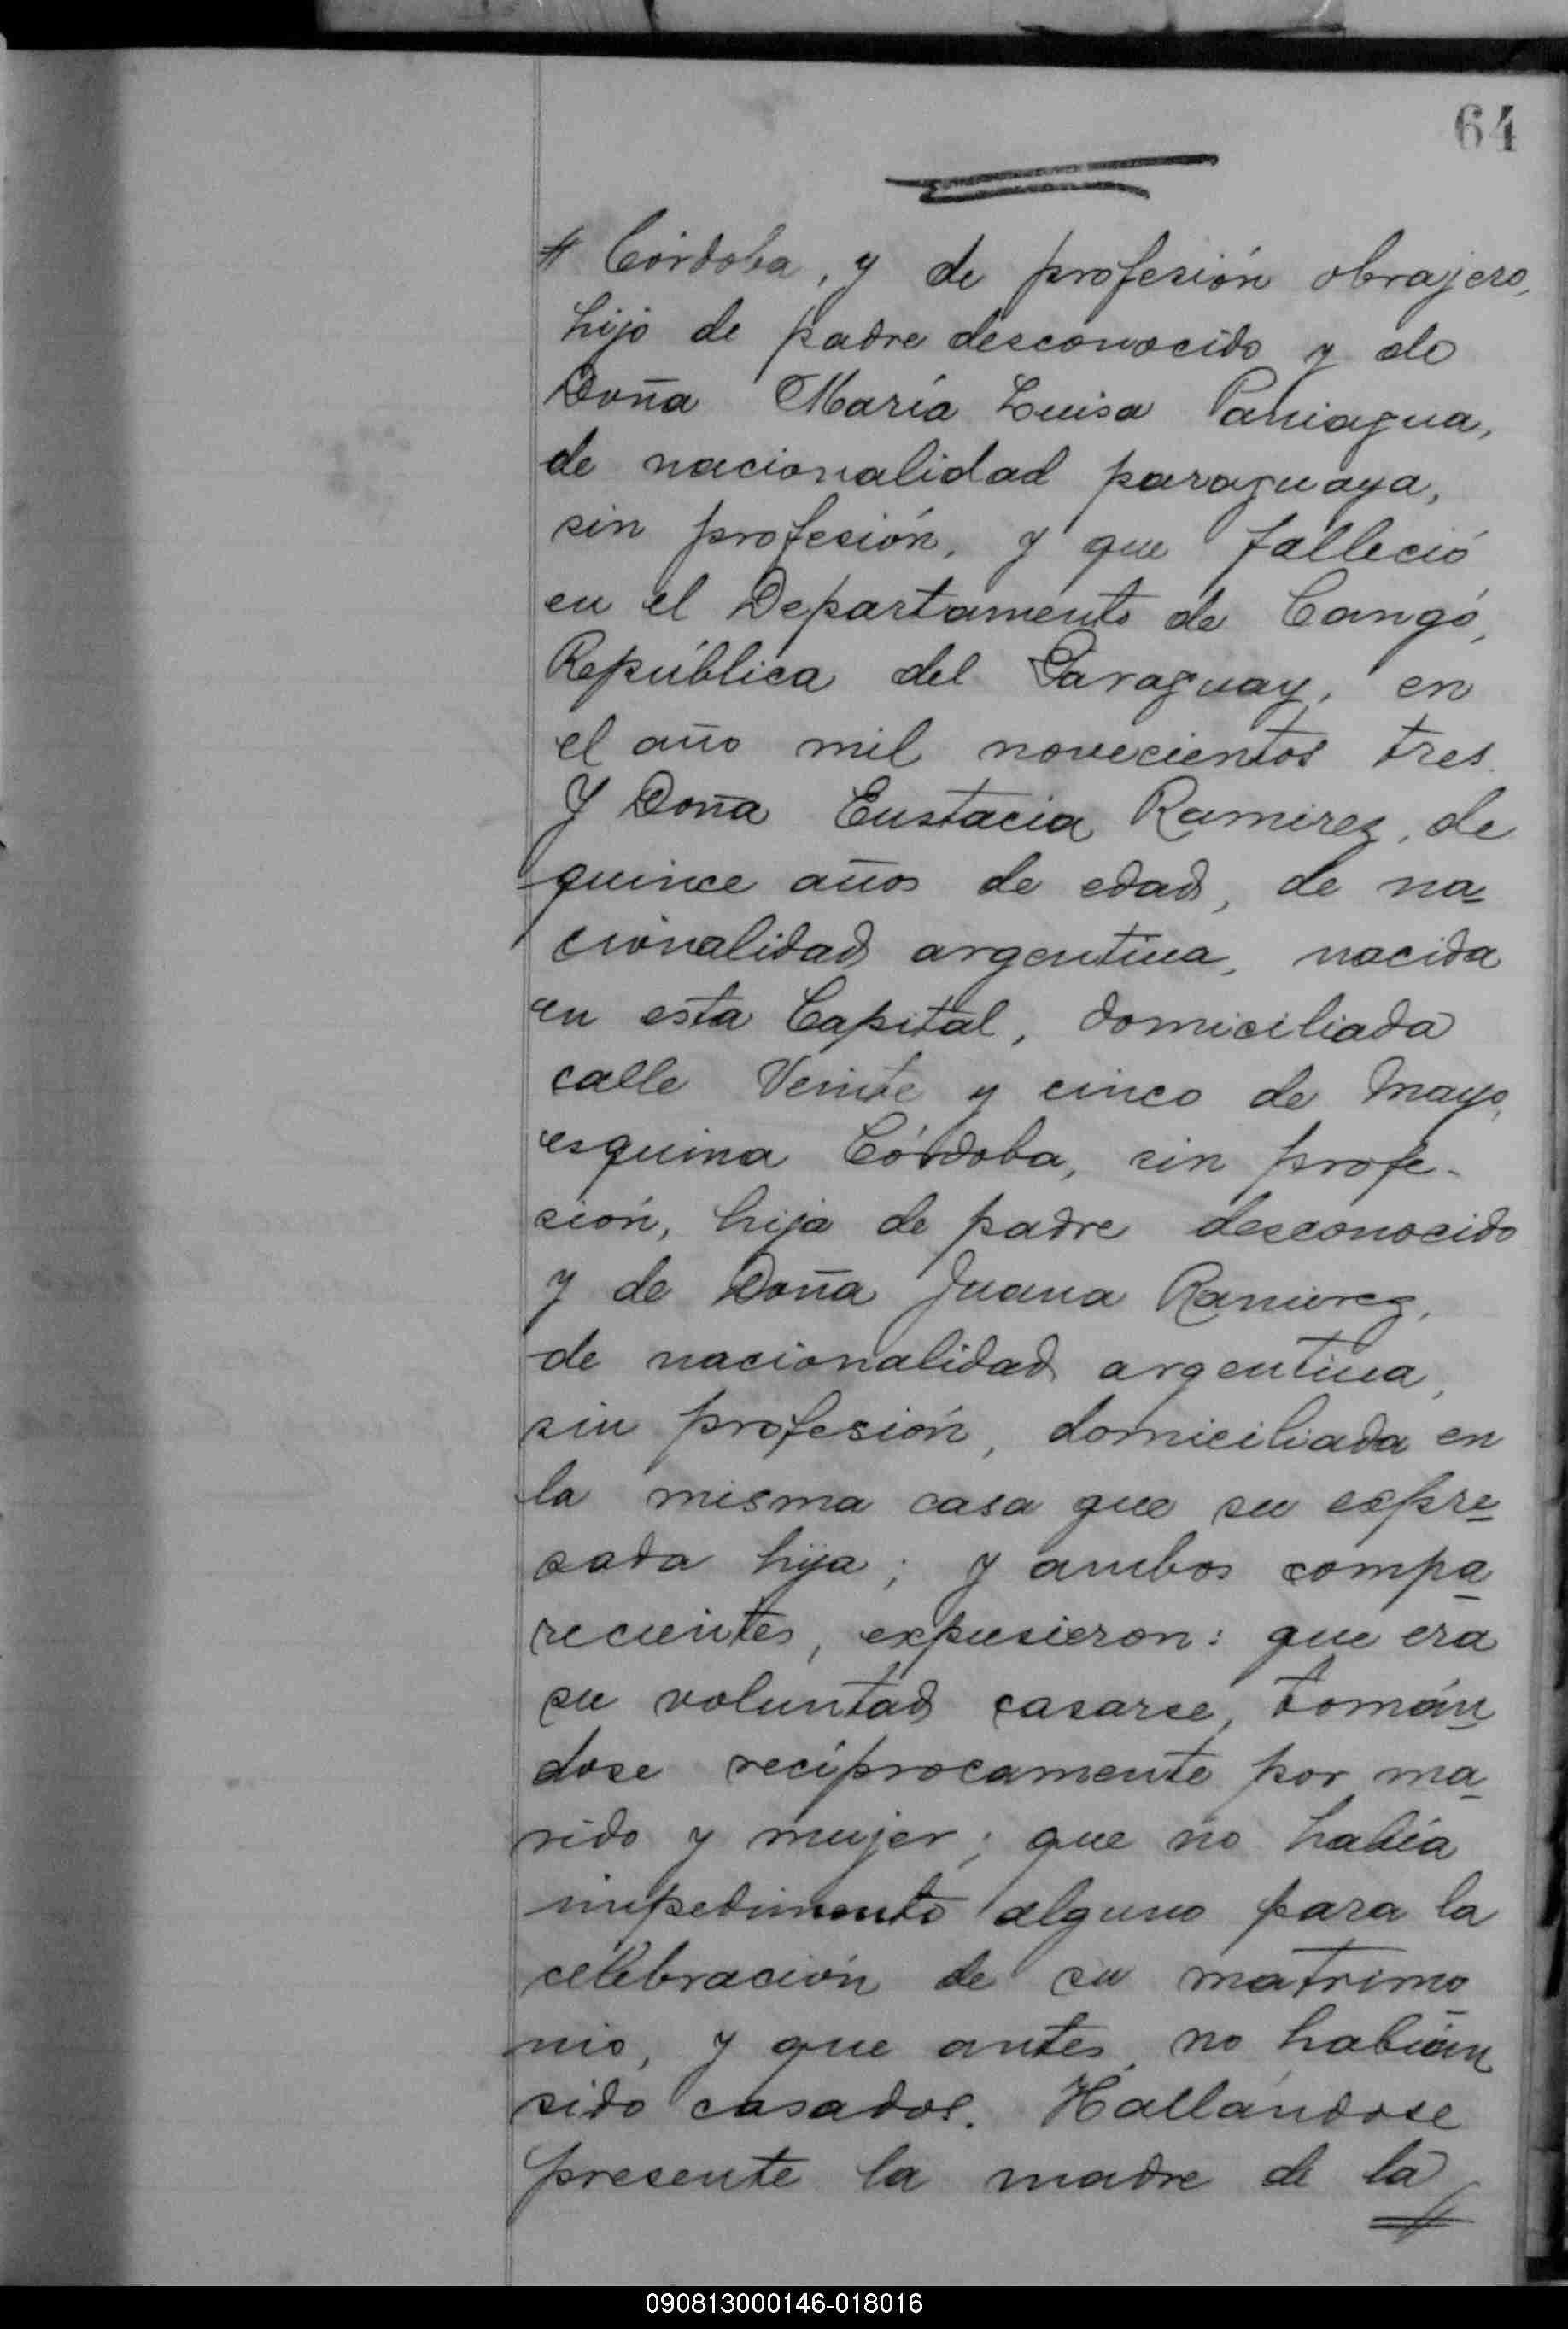 64
# Córdoba, y de profesión obrajero,
hijo de padre desconocido y de
Doña María Luisa Paniagua,
de nacionalidad paraguaya,
sin profesión, y que falleció
en el Departamento de Cangó,
República del Paraguay, en
el año mil novecientos tres.
Y Doña Eustacia Ramirez, de
quince años de edad, de na-
cionalidad argentina, nacida
en esta Capital, domiciliada
calle Veinte y cinco de Mayo,
esquina Córdoba, sin profe-
sión, hija de padre desconocido
y de Doña Juana Ramirez,
de nacionalidad argentina,
sin profesión, domiciliada en
la misma casa que su expre-
sada hija; y ambos compa-
recientes, expusieron: que era
su voluntad casarse, tomán-
dose recíprocamente por ma-
rido y mujer; que no había
impedimento alguno para la
celebración de su matrimo-
nio, y que antes, no habían
sido casados. Hallándose
presente la madre de la
090813000146-018016